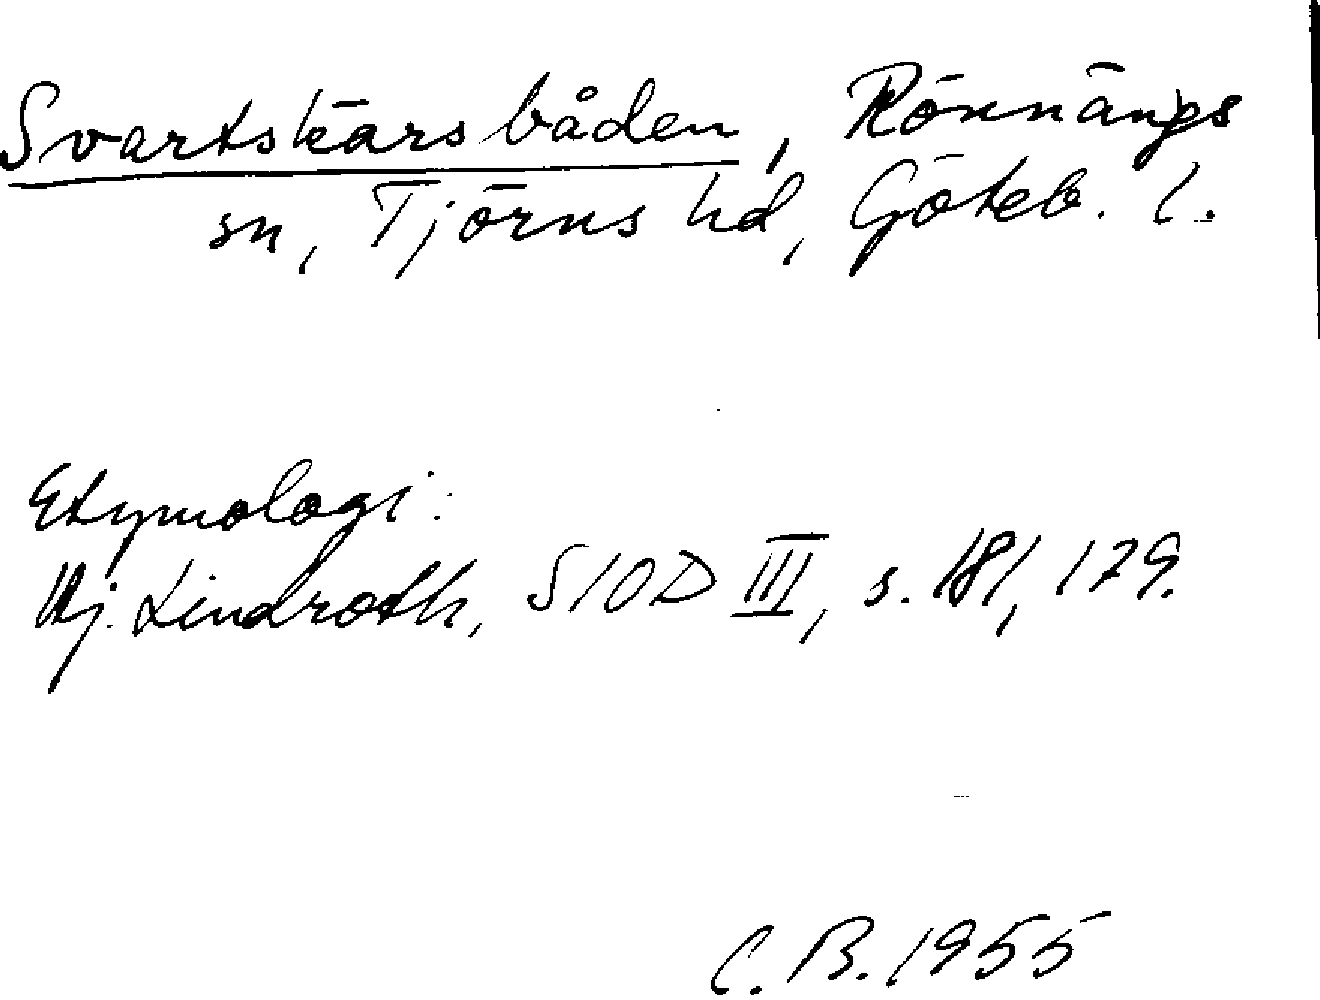 Svartskärsbåden, Rönnängs
sn, Tjörns hd, Göteb. l.
Etymologi:
Hj. Lindroth, SIOD III, s. 181, 179.
C. B. 1955